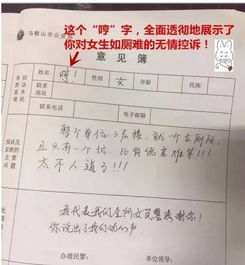 这个“哼”字，全面透彻地展示了
你对女生如厕难的无情控诉！
马鞍山市公安局
意见簿
姓名 哼！ 性别 女 年龄 民族
联系地址
联系电话 电子邮箱
整个单位三层楼，就一个女厕所，
且只有一个坑，
太不人道了!!!
我代表我们全所女民警感谢你!
你说出了我们的心声
办理民警： 单位领导：